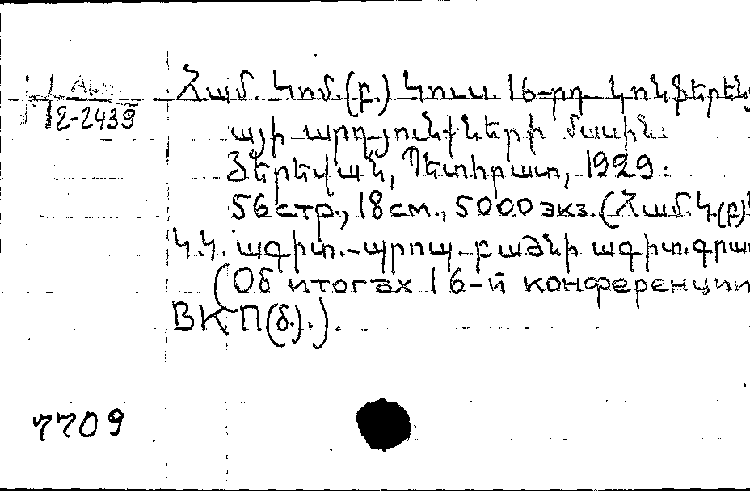 Համ. Կոմ.(բ.) Կուս. 16-րդ կոնֆերենց
12-2439
այի արդյունքների մասին.
Յերեվան, Պետհրատ, 1929.
56 стр., 18 см., 5000 экз. (Համ.Կ.(բ)
Կ.Կ. ագիտ.-պրոպ. բաժնի ագիտ.գրա
(Об итогах 16-й конференции
ВКП(б).).
7709